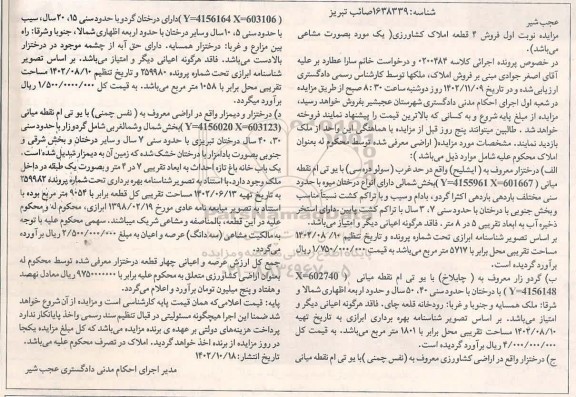 شناسه: ۱۶۳۸۳۳۹ صائب تبریز
عجب شیر
مزایده نوبت اول فروش ۴ قطعه املاک کشاورزی( یک مورد بصورت مشاعی
می‌باشد).
در خصوص پرونده اجرائی کلاسه ۰۲۰۰۴۸۴ و درخواست خانم سارا عطارد بر علیه
آقای اصغر جوادی مبنی بر فروش املاک، ملکها توسط کارشناس رسمی دادگستری
ارزیابی شده و در تاریخ ۱۴۰۲/۱۱/۰۹ روز دوشنبه ساعت ۸:۳۰ صبح از طریق مزایده
در شعبه اول اجرای احکام مدنی دادگستری شهرستان عجبشیر بفروش خواهد رسید،
مزایده از مبلغ پایه شروع و به کسانی که بالاترین قیمت را پیشنهاد نمایند فروخته
خواهد شد . طالبین میتوانند پنج روز قبل از مزایده با هماهنگی این اجرا، از ملک
بازدید نمایند. مشخصات مورد مزایده( اراضی معرفی شده توسط محکوم له بعنوان
املاک محکوم علیه شامل موارد ذیل می‌باشد ):
الف) درختزار معروف به ( ایشلیح) واقع در حد غرب ( سولو درسی) با یو تی ام نقطه
میانی ( X=601667 Y=4155961) بخش شمالی دارای انواع درختان میوه با حدود
سنی مختلف باردهی باردهی اکثرا گردو، بادام وسیب و با تراکم کشت نسبتاً مناسب
وبخش جنوبی با درختان با حدودسنی ۷، ۳ سال با تراکم کشت پایین، دارای استخر
ذخیره آب به ابعاد تقریبی ۵ در ۸ متر . فاقد هرگونه اعیانی دیگر و امتیاز می‌باشد.
بر اساس تصویر شناسنامه ابرازی تحت شماره پرونده و تاریخ تنظیم ۱۴۰۲/۰۸/۱۰
مساحت تقریبی محل برابر با ۵۷۱۷ متر مربع می‌باشد به قیمت ۱/۷۵۰/۰۰۰/۰۰۰ ریال
برآورد گردیده است.
ب) گردو زار معروف به ( چایلاخ) با یو تی ام نقطه میانی (X=602740 و
Y=4156148 ) با درختان با حدودسنی ۴۰، ۵۰ سال و حدود اربعه اظهاری شمالا و
شرقا: ملک همسایه و جنوبا و غربا: رودخانه قلعه چای. فاقد هرگونه اعیانی دیگر و
امتیاز می‌باشد. بر اساس تصویر شناسنامه بهره برداری ابرازی به تاریخ تهیه
۱۴۰۲/۰۸/۱۰ مساحت تقریبی محل برابر با ۱۸۰۱ متر مربع می‌باشد. به قیمت کل
۴/۰۰۰/۰۰۰/۰۰۰ ریال برآورد گردیده است.
ج) درختزار واقع در اراضی کشاورزی معروف به (نفس چمنی) با یو تی ام نقطه میانی
( X=603106 Y=4156164) دارای درختان گردو با حدودسنی ۱۵، ۲۰ سال، سیب
با حدودسنی ۵، ۱۰ سال وسایر درختان با حدود اربعه اظهاری شمالا، جنوبا وشرقا: راه
بین مزارع و غربا: درختزار همسایه. دارای حق آبه از چشمه موجود در درختزار
بالادست می‌باشد. فاقد هرگونه اعیانی دیگر و امتیاز می‌باشد. بر اساس تصویر
شناسنامه ابرازی تحت شماره پرونده ۲۵۹۹۸۰ و تاریخ تنظیم ۱۴۰۲/۰۸/۱۰ مساحت
تقریبی محل برابر با ۱۰۵۸ متر مربع می‌باشد. به قیمت کل ۱/۵۰۰/۰۰۰/۰۰۰ ریال
برآورد میگردد.
د) درختزار و دیمزار واقع در اراضی معروف به ( نفس چمنی) با یو تی ام نقطه میانی
(X=603123 Y=4156020) بخش شمال وشمالغربی شامل گردوزار با حدودسنی
۳۰، ۴۰ سال درختان تبریزی با حدود سنی ۷ سال و سایر درختان و بخش شرقی و
جنوبی بصورت بادامزار با درختان خشک شده که زمین آن به دیمزار تبدیل شده است.
یک باب خانه باغ تازه احداث به ابعاد تقریبی ۷ در ۴ متر وبصورت یک طبقه در داخل
ملک وجود دارد. با استناد به تصویر شناسنامه بهره برداری تحت شماره پرونده ۲۵۹۹۸۲
به تاریخ تهیه ۱۴۰۲/۰۶/۱۳ مساحت تقریبی کل قطعه برابر با ۹۰۵۴ متر مربع بوده با
استناد به تصویر مبایعه نامه عادی مورخ ۱۳۹۸/۰۲/۱۹ ابرازی، محکوم له ومحکوم
علیه در این قطعه، بالمناصفه و مشاعی شریک میباشند. سهمی محکوم علیه با توجه
به مالکیت مشاعی (سه دانگ) عرصه و اعیان به مبلغ ۲/۵۰۰/۰۰۰/۰۰۰ ریال برآورده
می‌گردد.
جمع کل ارزش عرصه و اعیانی چهار قطعه درختزار معرفی شده توسط محکوم له
بعنوان اراضی کشاورزی متعلق به محکوم علیه برابر با ۹۷۵۰۰۰۰۰۰۰ ریال معادل نهصد
و هفتاد و پنج میلیون تومان برآورد و اعلام می‌گردد.
پایه: قیمت اعلامی که همان قیمت پایه کارشناسی است و مزایده از آن شروع خواهد
شد ضمنا این اجرا هیچگونه مسئولیتی در قبال تنظیم سند رسمی واخذ پایانکار ندارد
پرداخت هزینه‌های دولتی بر عهده ی برنده مزایده می‌باشد که کل مبلغ مزایده یکجا
در روز مزایده از برنده اخذ خواهد گردید. املاک در تصرف محکوم علیه می‌باشد.
تاریخ انتشار: ۱۴۰۲/۱۰/۱۸
مدیر اجرای احکام مدنی دادگستری عجب شیر